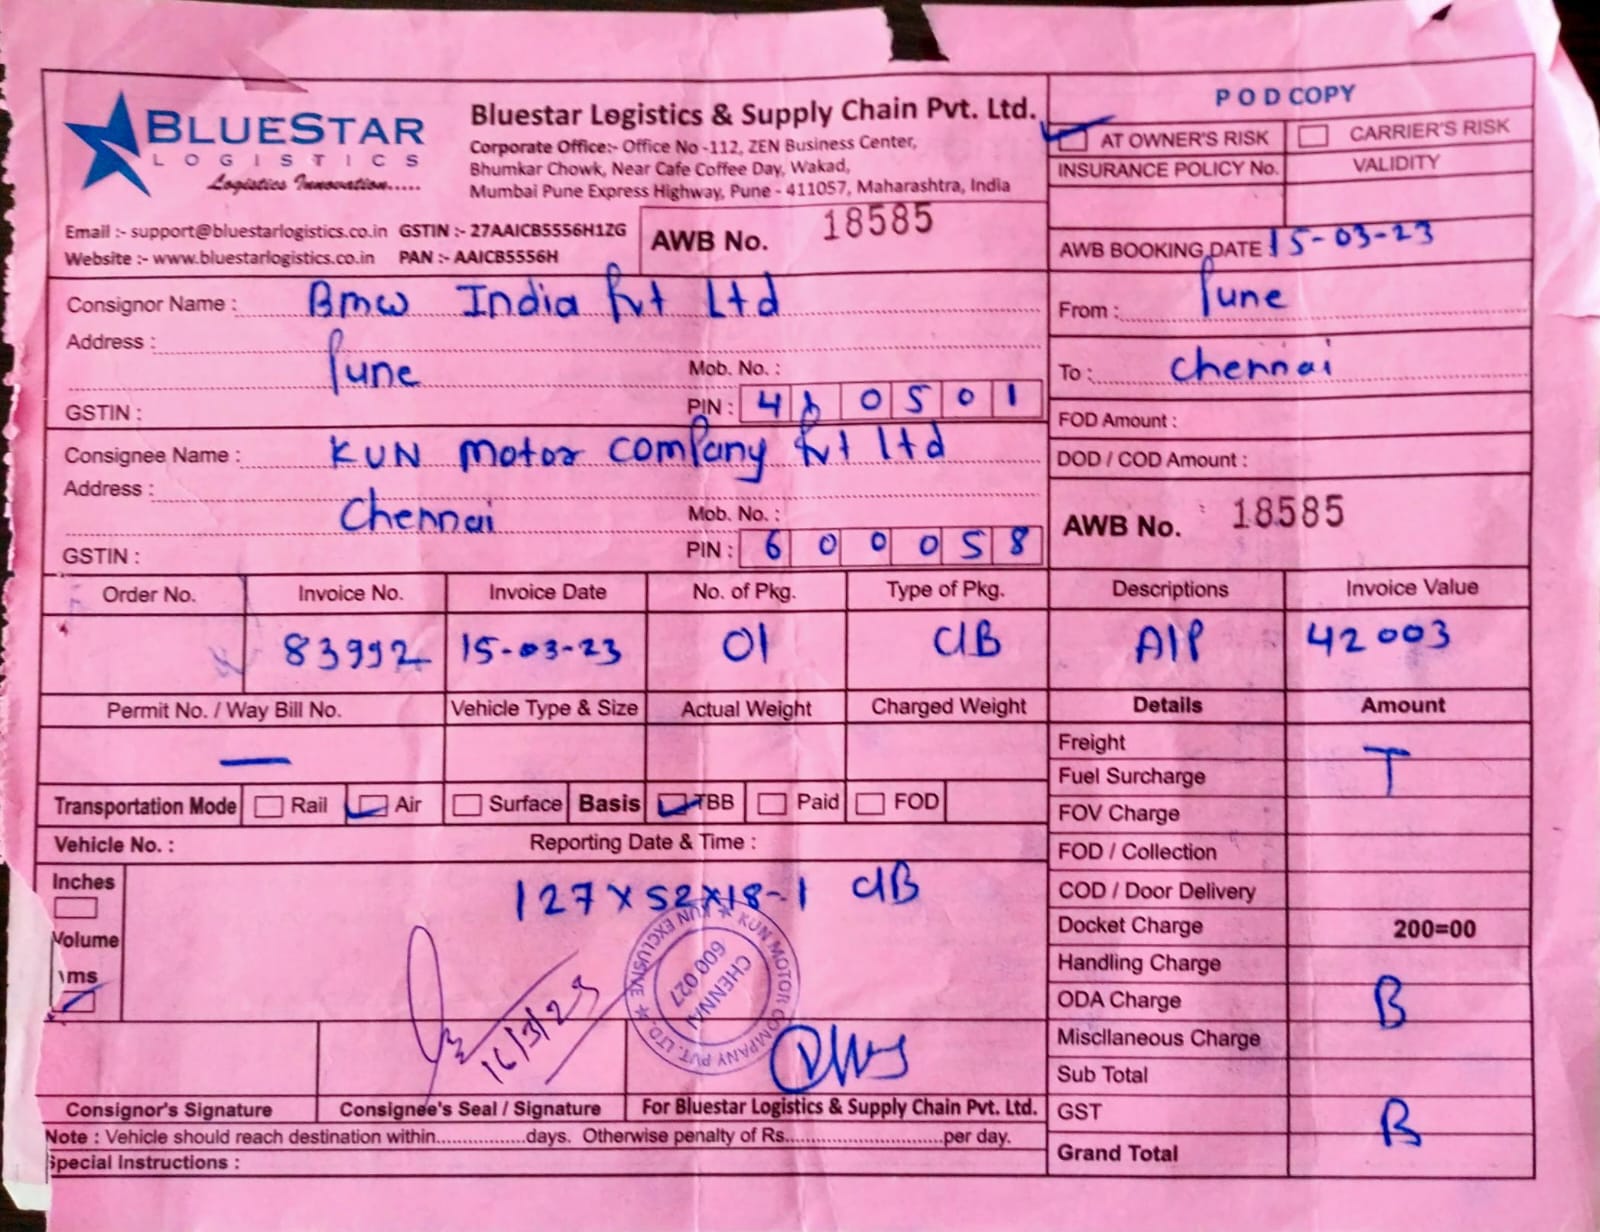 BLUESTAR
LOGISTICS
Logistics Innovation.....
Bluestar Logistics & Supply Chain Pvt. Ltd.
Corporate Office:- Office No -112, ZEN Business Center,
Bhumkar Chowk, Near Cafe Coffee Day, Wakad,
Mumbai Pune Express Highway, Pune - 411057, Maharashtra, India
Email :- support@bluestarlogistics.co.in GSTIN :- 27AAICB5556H1ZG
Website :- www.bluestarlogistics.co.in PAN :- AAICB5556H
AWB No. 18585
POD COPY
AT OWNER'S RISK CARRIER'S RISK
INSURANCE POLICY No. VALIDITY
AWB BOOKING DATE 15-03-23
From : Pune
To : Chennai
FOD Amount :
DOD / COD Amount :
AWB No. 18585
Consignor Name : Bmw India Pvt Ltd
Address :
Pune Mob. No. :
GSTIN : PIN : 410501
Consignee Name : KUN Motor Company Pvt Ltd
Address :
Chennai Mob. No. :
GSTIN : PIN : 600058
Order No. Invoice No. Invoice Date No. of Pkg. Type of Pkg. Descriptions Invoice Value
83992 15-03-23 01 C/B A/P 42003
Permit No. / Way Bill No. Vehicle Type & Size Actual Weight Charged Weight Details Amount
—
Transportation Mode Rail Air Surface Basis TBB Paid FOD
Vehicle No. : Reporting Date & Time :
Inches
Volume
127 x 52 x 18 - 1 C/B
Freight
T
Fuel Surcharge
FOV Charge
FOD / Collection
COD / Door Delivery
Docket Charge 200=00
Handling Charge
ODA Charge B
Miscllaneous Charge
Sub Total
GST B
Grand Total
KUN MOTOR COMPANY PVT. LTD.
KUN EXCLUSIVE
CHENNAI
600 027
16/3/23
Consignor's Signature Consignee's Seal / Signature For Bluestar Logistics & Supply Chain Pvt. Ltd.
Note : Vehicle should reach destination within.................days. Otherwise penalty of Rs..............................per day.
Special Instructions :